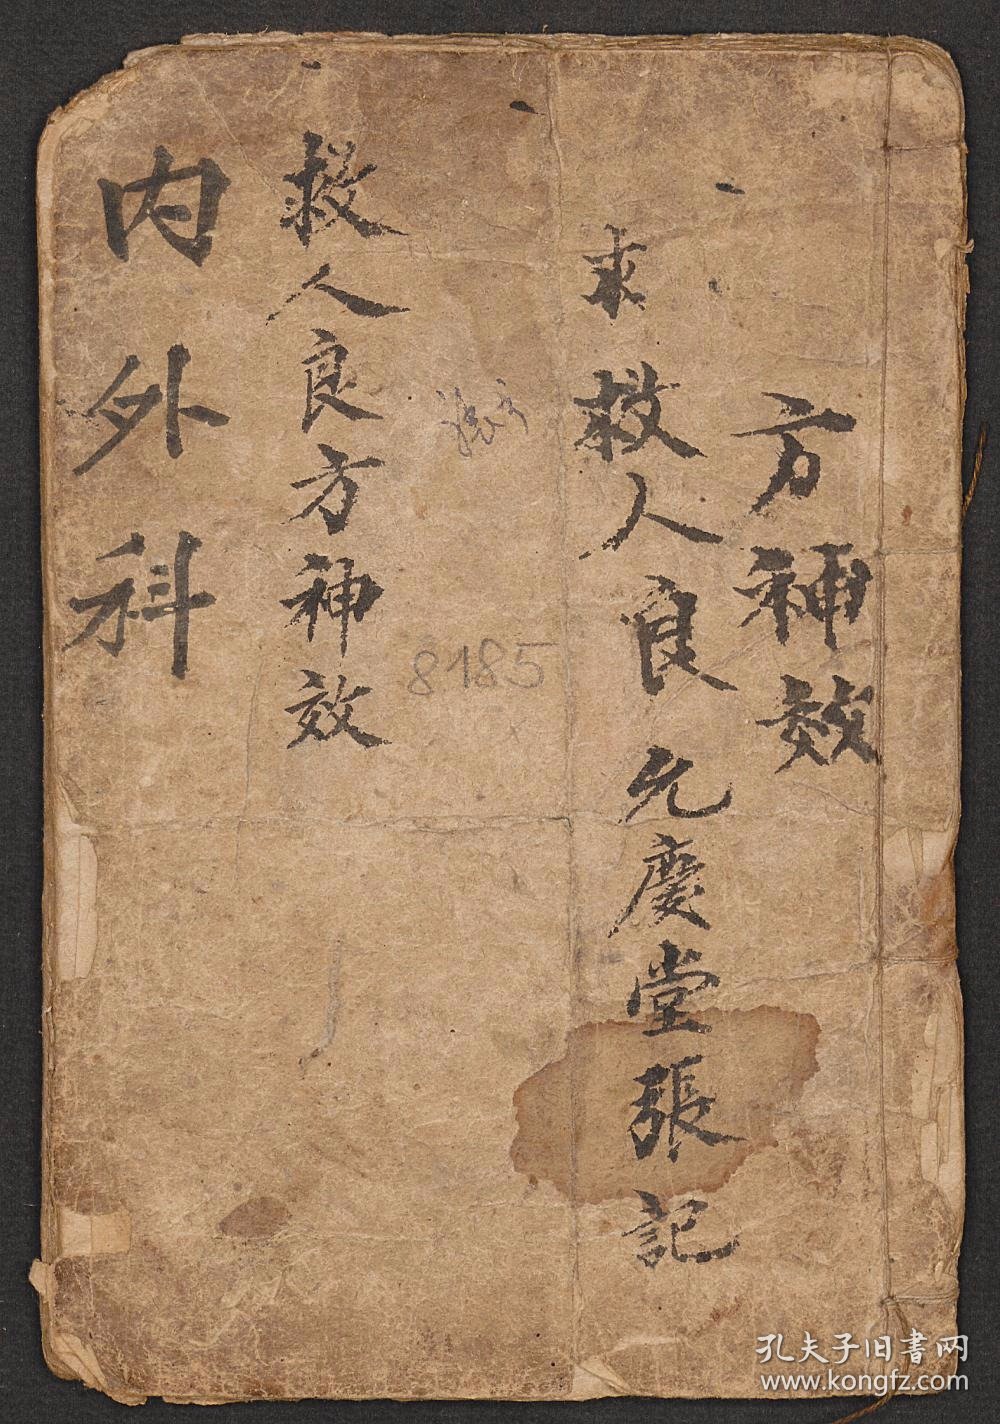 方神效
求救人良允慶堂張記
救人良方神效
内外科
8185
孔夫子旧書网
www.kongfz.com